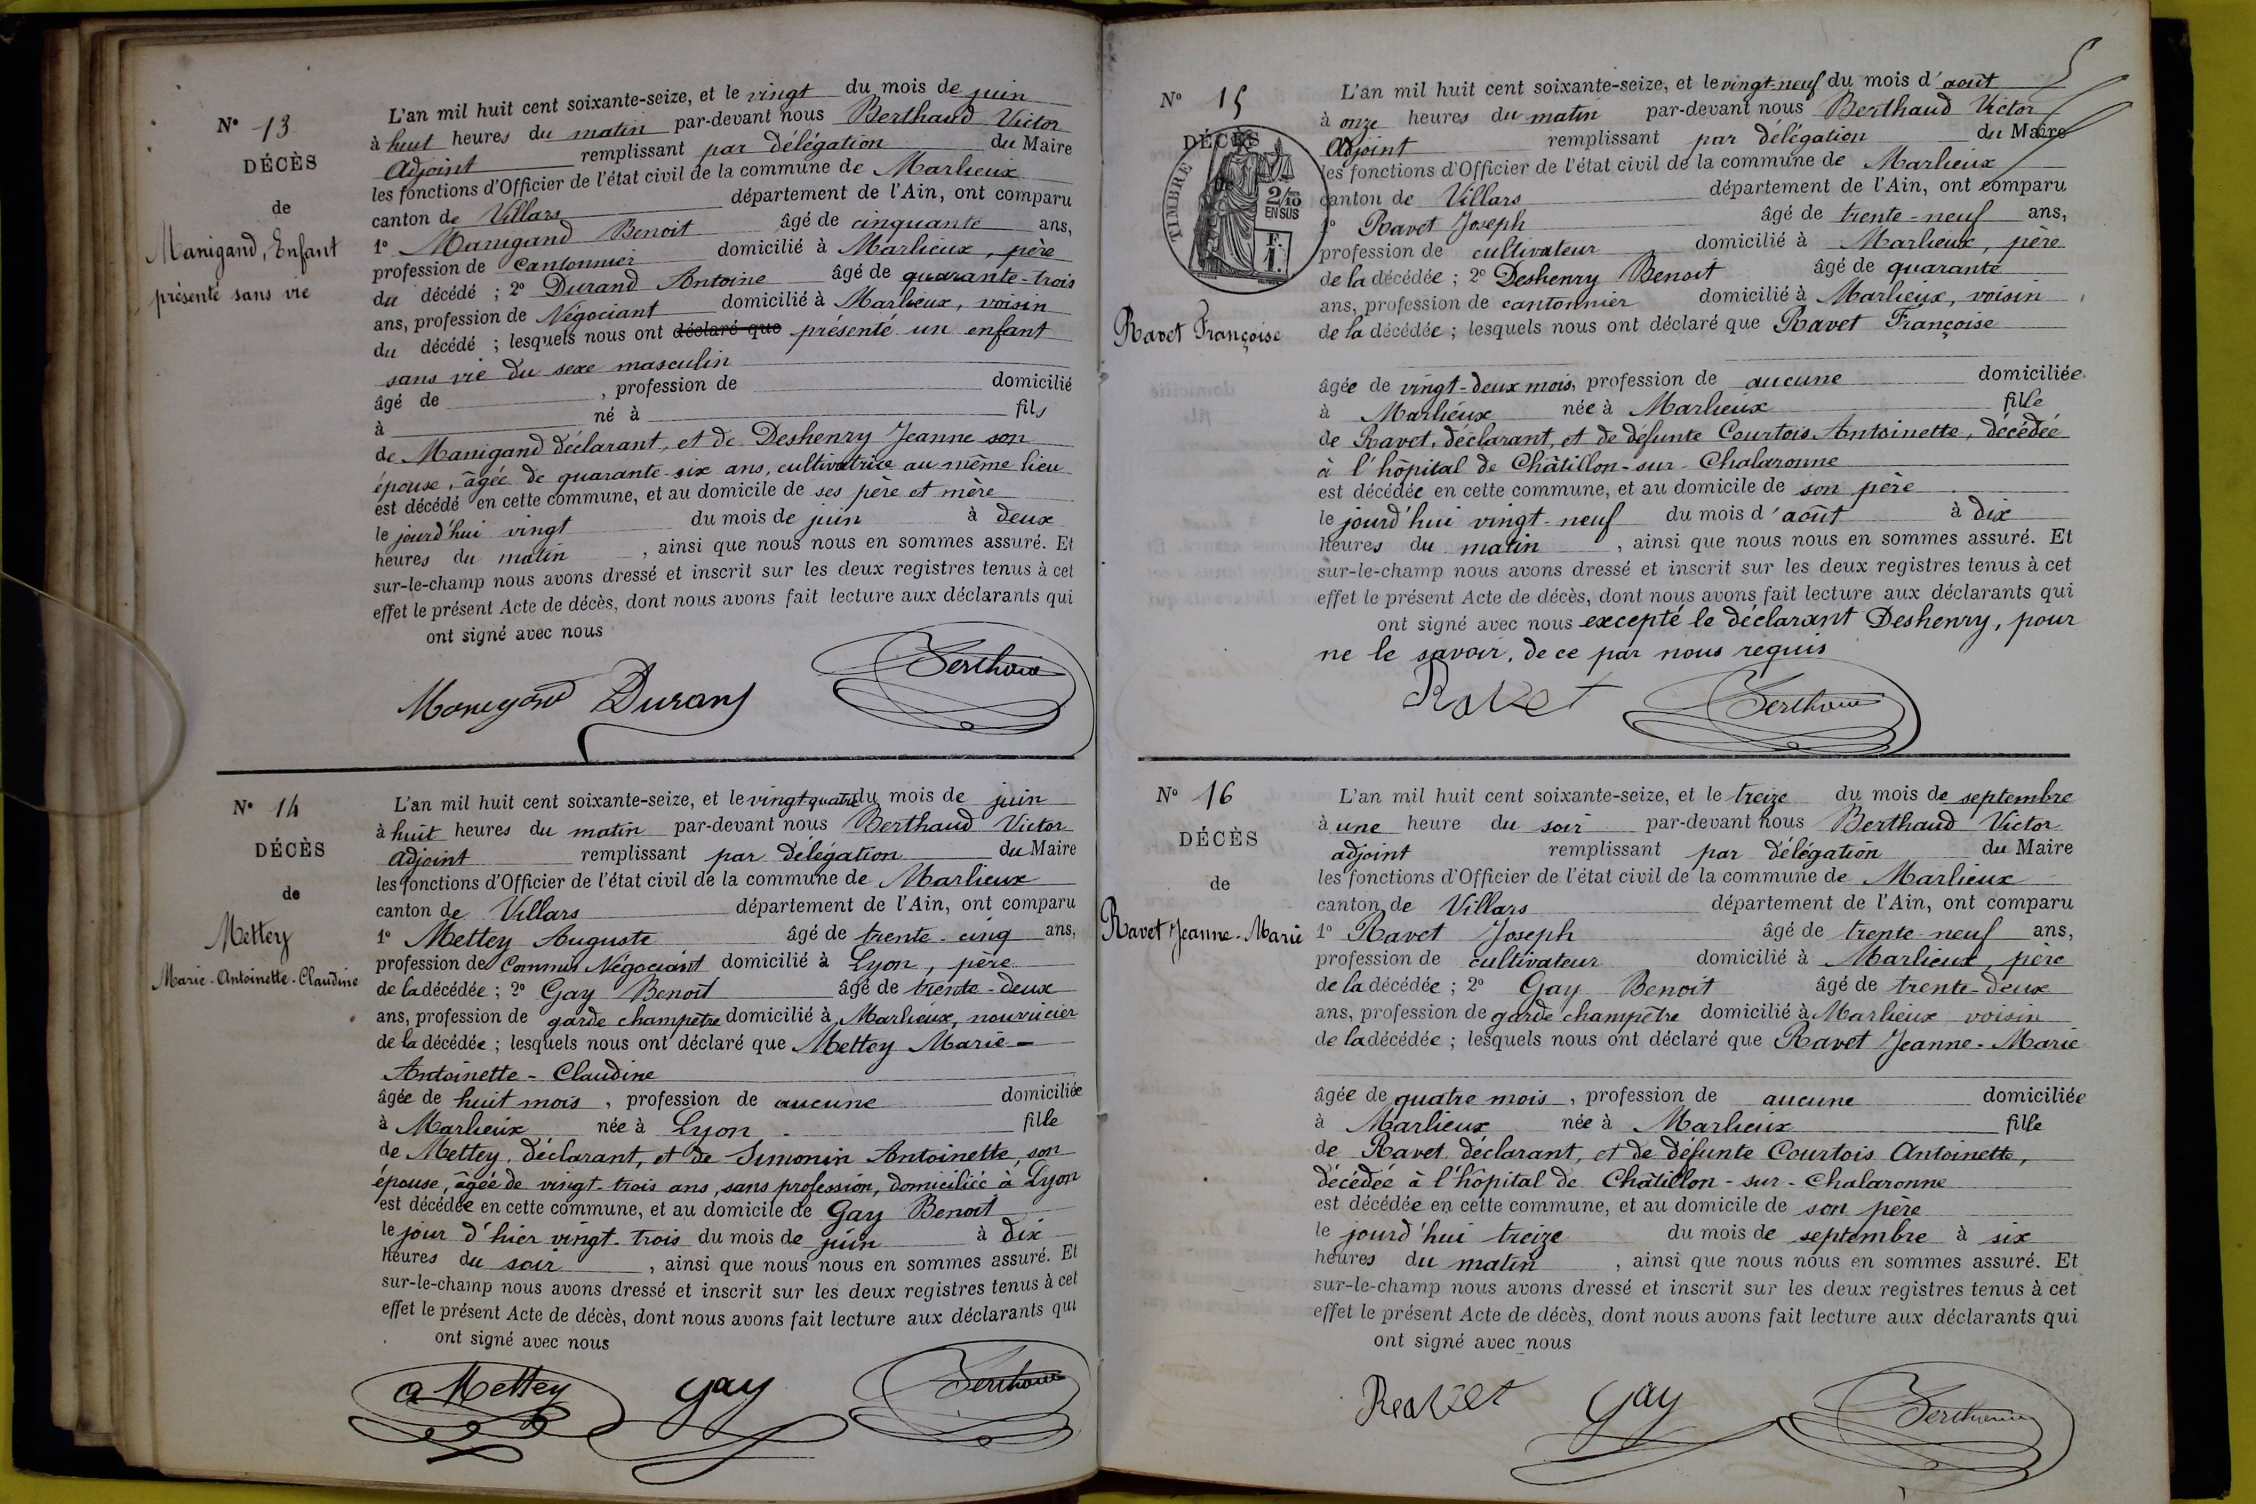 N° 13
DÉCÈS
de
Manigand, Enfant
présenté sans vie
L'an mil huit cent soixante-seize, et le vingt du mois de juin
à huit heures du matin par-devant nous Berthaud Victor
Adjoint remplissant par délégation du Maire
les fonctions d'Officier de l'état civil de la commune de Marlieux
canton de Villars département de l'Ain, ont comparu
1° Manigand Benoit âgé de cinquante ans,
profession de Cantonnier domicilié à Marlieux, père
du décédé ; 2° Durand Antoine âgé de quarante-trois
ans, profession de Négociant domicilié à Marlieux, voisin
du décédé ; lesquels nous ont déclaré que présenté un enfant
sans vie du sexe masculin
âgé de , profession de domicilié
à né à fils
de Manigand déclarant, et de Deshenry Jeanne son
épouse, âgée de quarante-six ans, cultivatrice au même lieu
est décédé en cette commune, et au domicile de ses père et mère
le jourd'hui vingt du mois de juin à deux
heures du matin , ainsi que nous nous en sommes assuré. Et
sur-le-champ nous avons dressé et inscrit sur les deux registres tenus à cet
effet le présent Acte de décès, dont nous avons fait lecture aux déclarants qui
ont signé avec nous
Manigand Durand Berthaud
N° 14
DÉCÈS
de
Mettey
Marie-Antoinette-Claudine
L'an mil huit cent soixante-seize, et le vingt quatre du mois de juin
à huit heures du matin par-devant nous Berthaud Victor
adjoint remplissant par délégation du Maire
les fonctions d'Officier de l'état civil de la commune de Marlieux
canton de Villars département de l'Ain, ont comparu
1° Mettey Auguste âgé de trente-cinq ans,
profession de Commis Négociant domicilié à Lyon, père
de la décédée ; 2° Gay Benoit âgé de trente-deux
ans, profession de garde champêtre domicilié à Marlieux, nourricier
de la décédée ; lesquels nous ont déclaré que Mettey Marie-
Antoinette-Claudine
âgée de huit mois , profession de aucune domiciliée
à Marlieux née à Lyon fille
de Mettey, déclarant, et de Simonin Antoinette, son
épouse, âgée de vingt-trois ans, sans profession, domiciliée à Lyon
est décédée en cette commune, et au domicile de Gay Benoit
le jour d'hier vingt-trois du mois de juin à dix
heures du soir , ainsi que nous nous en sommes assuré. Et
sur-le-champ nous avons dressé et inscrit sur les deux registres tenus à cet
effet le présent Acte de décès, dont nous avons fait lecture aux déclarants qui
ont signé avec nous
a Mettey Gay Berthaud
5
N° 15
DÉCÈS
TIMBRE
2/10
EN SUS
F.
1.
Ravet Françoise
L'an mil huit cent soixante-seize, et le vingt-neuf du mois d'août
à onze heures du matin par-devant nous Berthaud Victor
Adjoint remplissant par délégation du Maire
les fonctions d'Officier de l'état civil de la commune de Marlieux
canton de Villars département de l'Ain, ont comparu
1° Ravet Joseph âgé de trente-neuf ans,
profession de cultivateur domicilié à Marlieux, père
de la décédée ; 2° Deshenry Benoit âgé de quarante
ans, profession de cantonnier domicilié à Marlieux, voisin
de la décédée ; lesquels nous ont déclaré que Ravet Françoise
âgée de vingt-deux mois, profession de aucune domiciliée
à Marlieux née à Marlieux fille
de Ravet, déclarant, et de défunte Courtois Antoinette, décédée
à l'hôpital de Châtillon-sur-Chalaronne
est décédée en cette commune, et au domicile de son père
le jourd'hui vingt-neuf du mois d'août à dix
heures du matin , ainsi que nous nous en sommes assuré. Et
sur-le-champ nous avons dressé et inscrit sur les deux registres tenus à cet
effet le présent Acte de décès, dont nous avons fait lecture aux déclarants qui
ont signé avec nous excepté le déclarant Deshenry, pour
ne le savoir, de ce par nous requis
Ravet Berthaud
N° 16
DÉCÈS
de
Ravet Jeanne-Marie
L'an mil huit cent soixante-seize, et le treize du mois de septembre
à une heure du soir par-devant nous Berthaud Victor
adjoint remplissant par délégation du Maire
les fonctions d'Officier de l'état civil de la commune de Marlieux
canton de Villars département de l'Ain, ont comparu
1° Ravet Joseph âgé de trente-neuf ans,
profession de cultivateur domicilié à Marlieux, père
de la décédée ; 2° Gay Benoit âgé de trente-deux
ans, profession de garde champêtre domicilié à Marlieux voisin
de la décédée ; lesquels nous ont déclaré que Ravet Jeanne-Marie
âgée de quatre mois , profession de aucune domiciliée
à Marlieux née à Marlieux fille
de Ravet déclarant, et de défunte Courtois Antoinette,
décédée à l'hôpital de Châtillon-sur-Chalaronne
est décédée en cette commune, et au domicile de son père
le jourd'hui treize du mois de septembre à six
heures du matin , ainsi que nous nous en sommes assuré. Et
sur-le-champ nous avons dressé et inscrit sur les deux registres tenus à cet
effet le présent Acte de décès, dont nous avons fait lecture aux déclarants qui
ont signé avec nous
Ravet Gay Berthaud